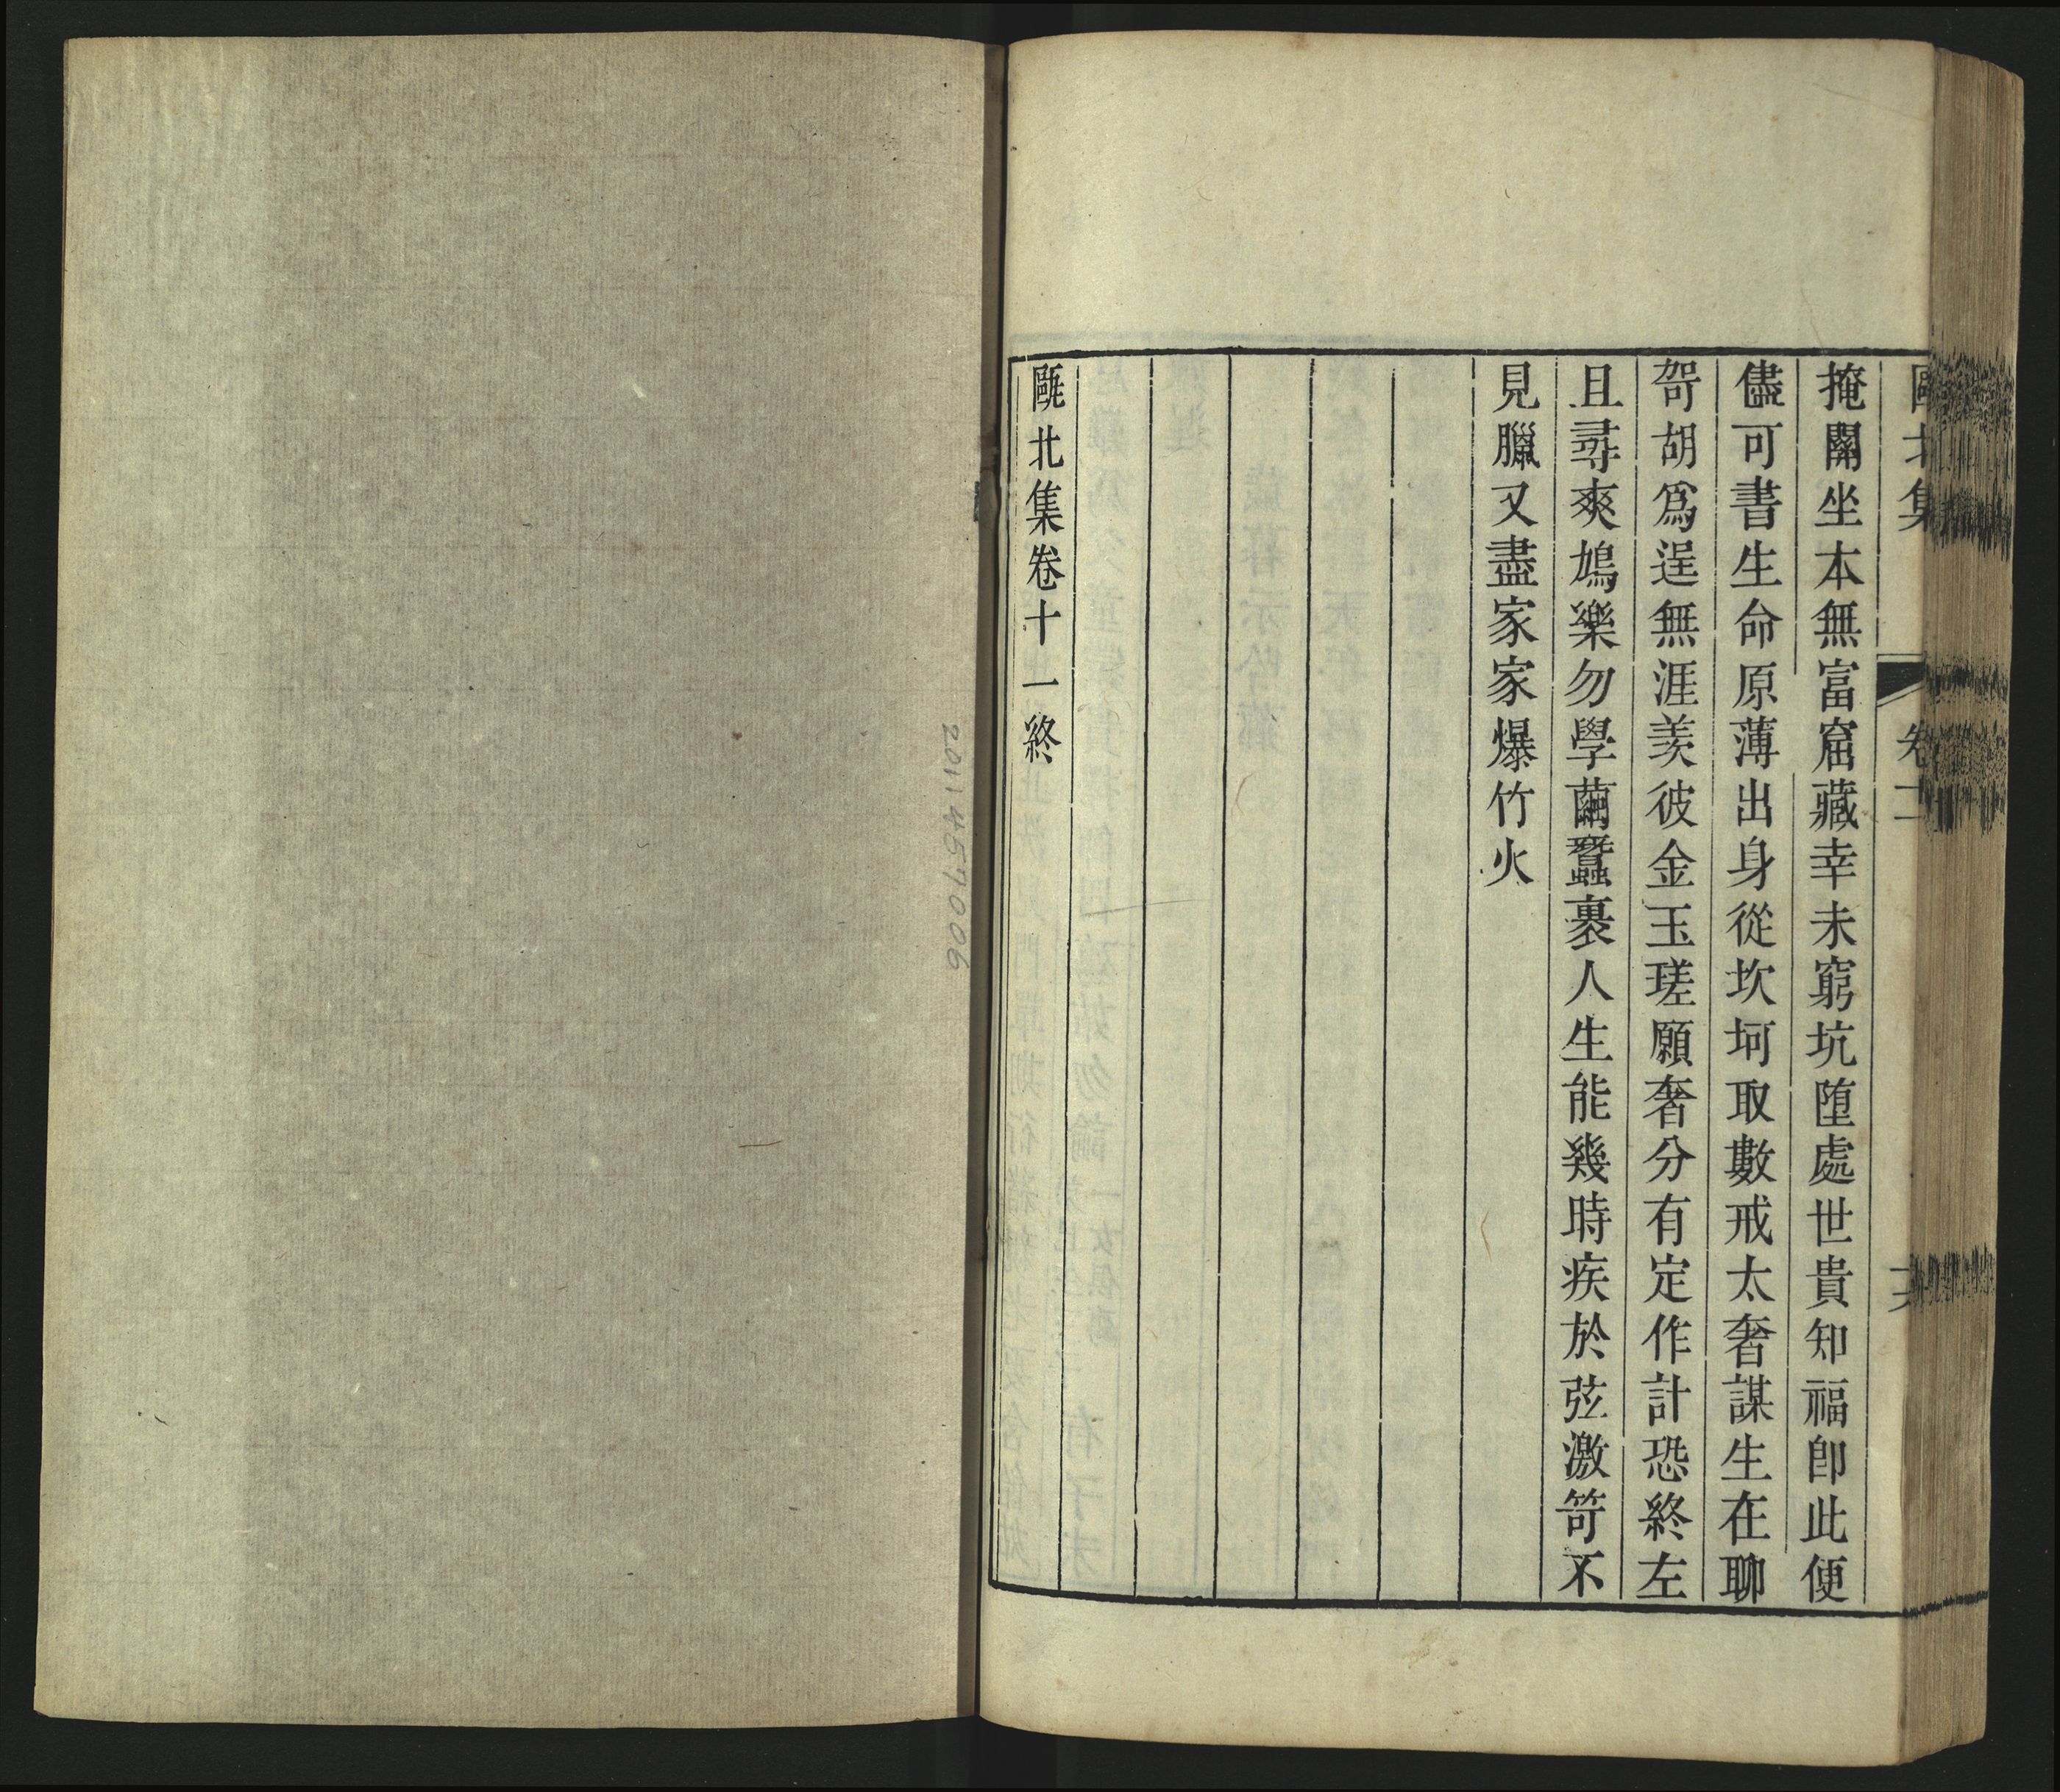 掩關坐本無富窟藏幸未窮坑堕處世貴知福卽此便
儘可書生命原薄出身從坎坷取數戒太奢謀生在聊
哿胡爲逞無涯羨彼金玉瑳願奢分有定作計恐終左
且尋爽鳩樂勿學繭蠶裹人生能幾時疾於弦激笴不
見臘又盡家家爆竹火
甌北集卷十一終
2011457006